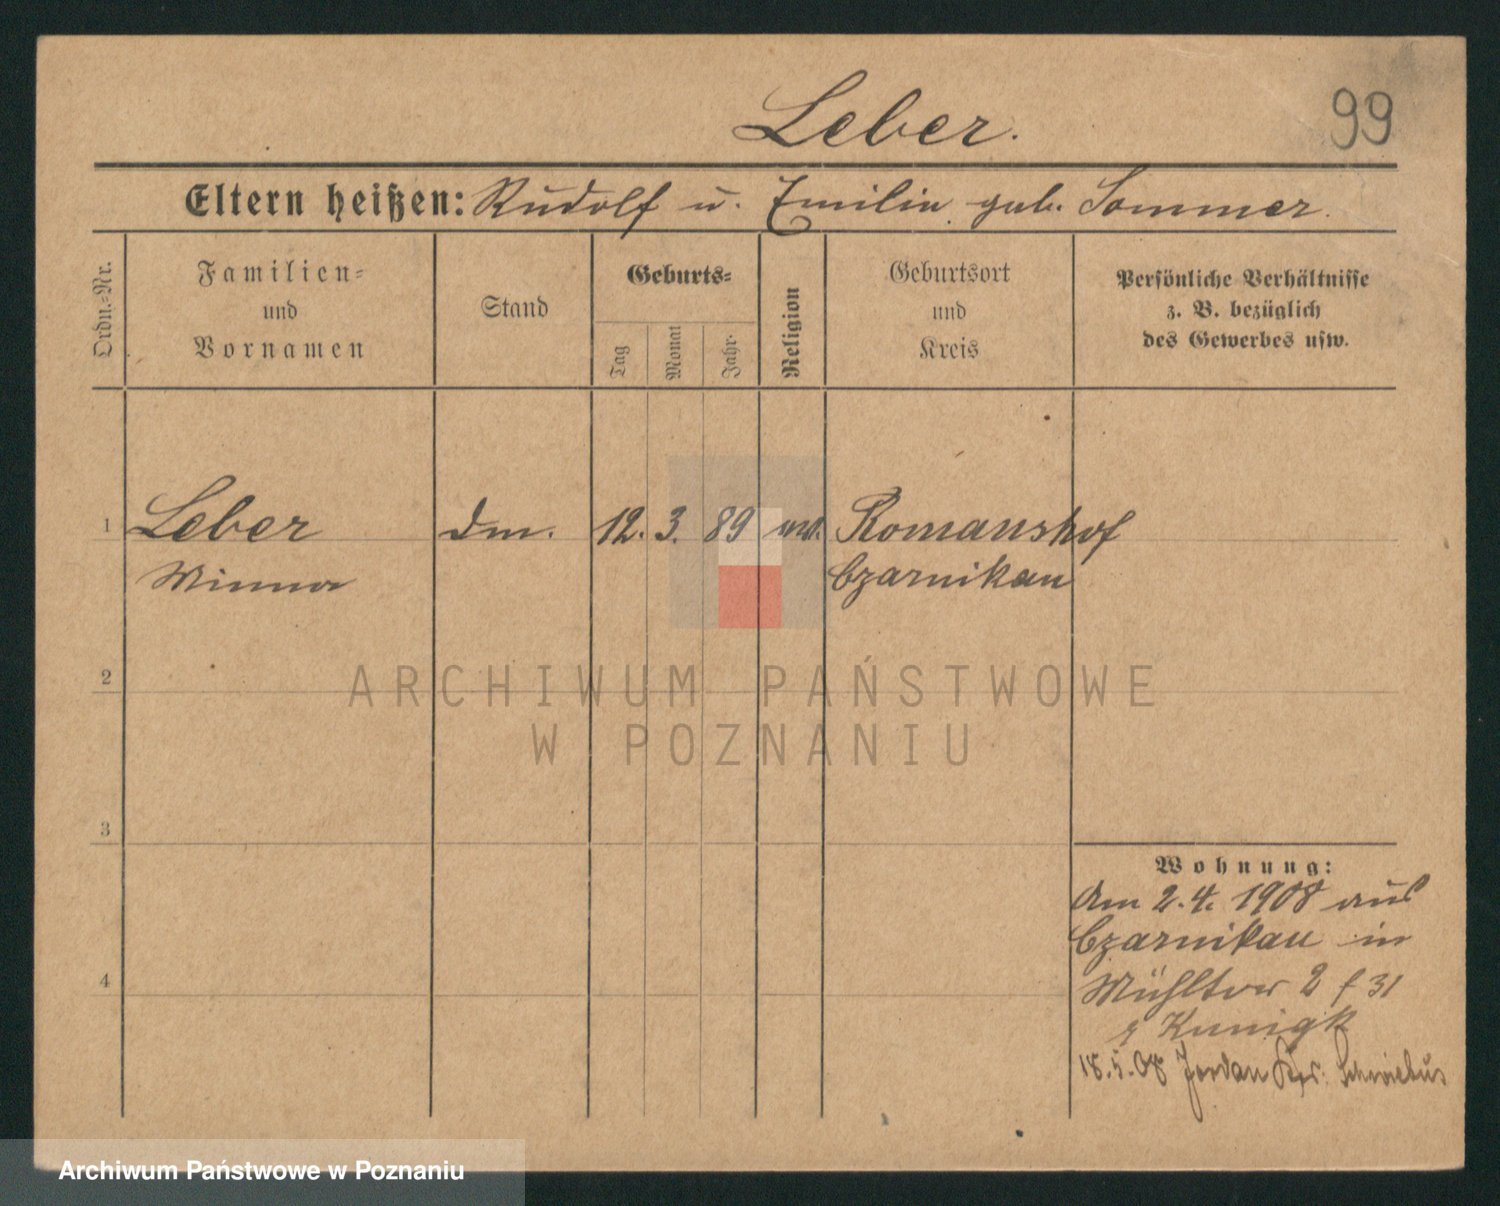 Leber.
99
Eltern heißen: Rudolf u. Emilie geb. Sommer.
Ordn.-Nr.
Familien-
und
Vornamen
Stand
Geburts-
Tag
Monat
Jahr.
Religion
Geburtsort
und
Kreis
Persönliche Verhältnisse
z. B. bezüglich
des Gewerbes usw.
1 Leber dm. 12. 3. 89 ev. Romanshof
Minna Czarnikau
2
ARCHIWUM PAŃSTWOWE
W POZNANIU
3
Wohnung:
Am 2.4. 1908 aus
Czarnikau in
4
Mühltor 2 f 31
Kunigk
18.5.08 Jordan Krs. Schwiebus
Archiwum Państwowe w Poznaniu